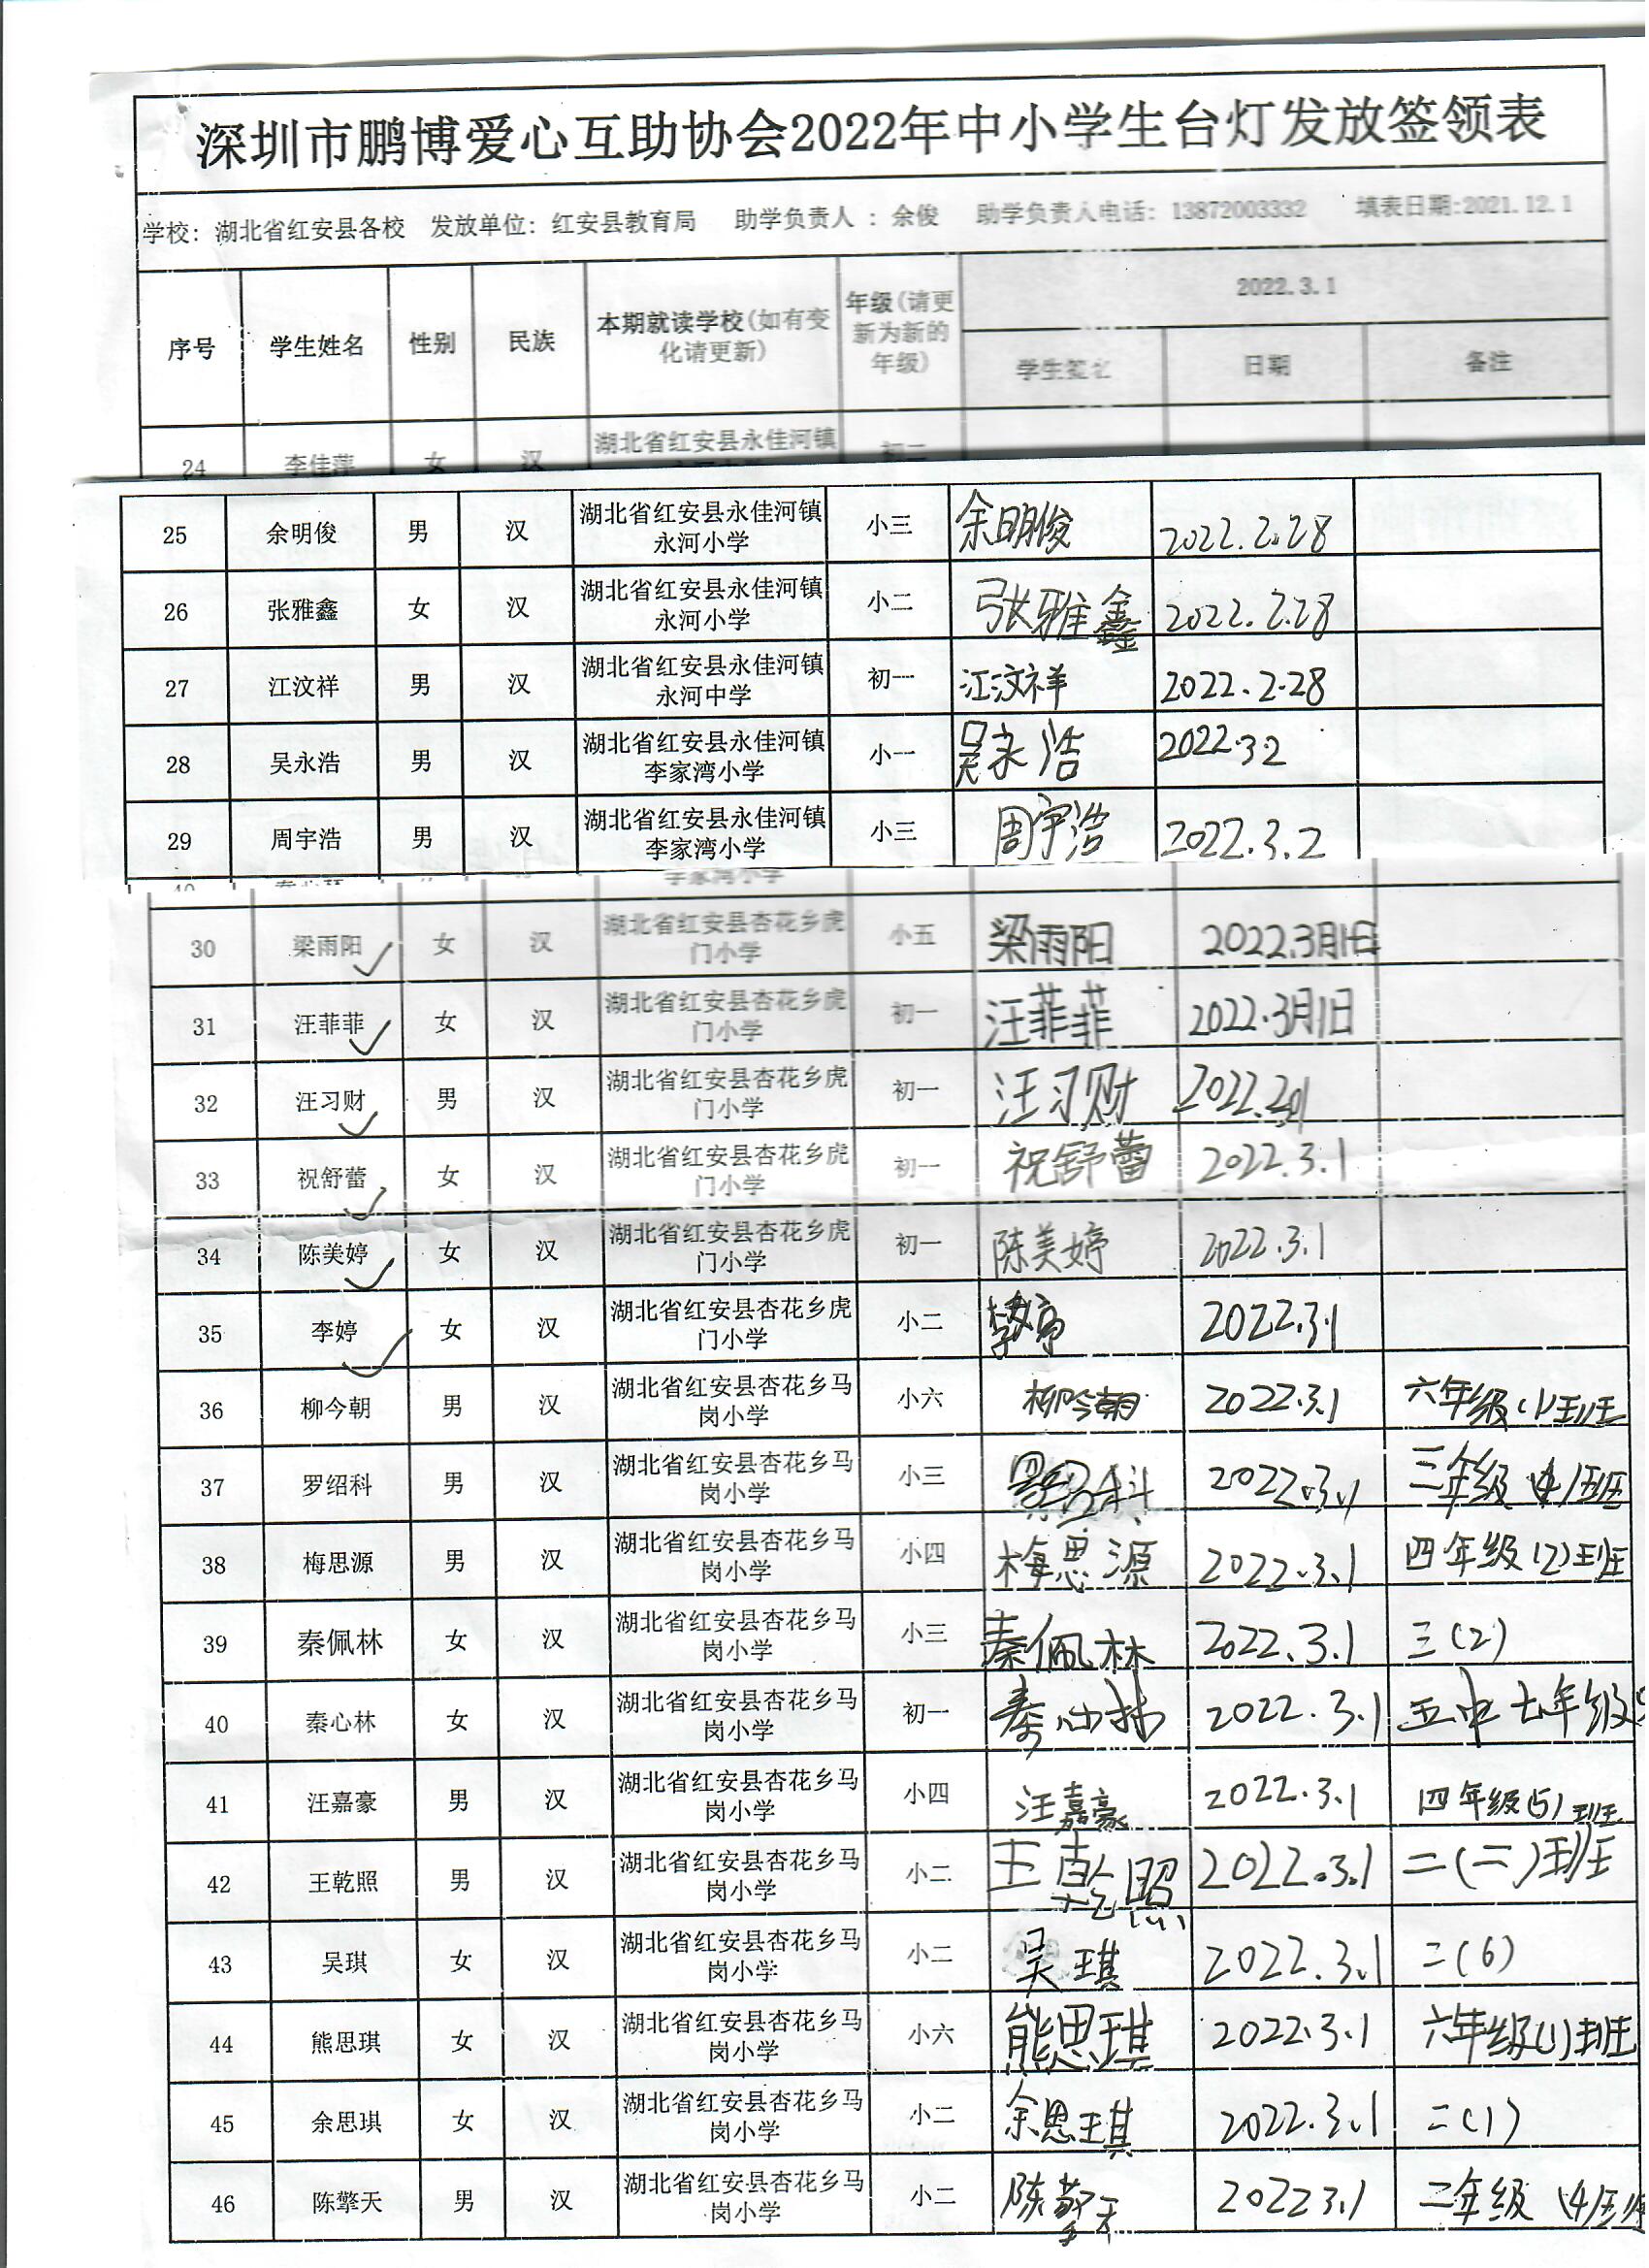 深圳市鹏博爱心互助协会2022年中小学生台灯发放签领表
学校：湖北省红安县各校 发放单位：红安县教育局 助学负责人：余俊 助学负责人电话：13872003332 填表日期:2021.12.1
序号 学生姓名 性别 民族 本期就读学校(如有变化请更新) 年级(请更新为新的年级) 2022.3.1
学生签名 日期 备注
24 李佳萍 女 汉 湖北省红安县永佳河镇 初二
25 余明俊 男 汉 湖北省红安县永佳河镇永河小学 小三 余明俊 2022.2.28
26 张雅鑫 女 汉 湖北省红安县永佳河镇永河小学 小二 张雅鑫 2022.2.28
27 江汶祥 男 汉 湖北省红安县永佳河镇永河中学 初一 江汶祥 2022.2.28
28 吴永浩 男 汉 湖北省红安县永佳河镇李家湾小学 小一 吴永浩 2022.3.2
29 周宇浩 男 汉 湖北省红安县永佳河镇李家湾小学 小三 周宇浩 2022.3.2
30 梁雨阳 女 汉 湖北省红安县杏花乡虎门小学 小五 梁雨阳 2022.3月1日
31 汪菲菲 女 汉 湖北省红安县杏花乡虎门小学 初一 汪菲菲 2022.3月1日
32 汪习财 男 汉 湖北省红安县杏花乡虎门小学 初一 汪习财
33 祝舒蕾 女 汉 湖北省红安县杏花乡虎门小学 初一 祝舒蕾 2022.3.1
34 陈美婷 女 汉 湖北省红安县杏花乡虎门小学 初一 陈美婷 2022.3.1
35 李婷 女 汉 湖北省红安县杏花乡虎门小学 小二 李婷 2022.3.1
36 柳今朝 男 汉 湖北省红安县杏花乡马岗小学 小六 柳今朝 2022.3.1 六年级(1)班
37 罗绍科 男 汉 湖北省红安县杏花乡马岗小学 小三 罗绍科 2022.3.1 三年级(4)班
38 梅思源 男 汉 湖北省红安县杏花乡马岗小学 小四 梅思源 2022.3.1 四年级(2)班
39 秦佩林 女 汉 湖北省红安县杏花乡马岗小学 小三 秦佩林 2022.3.1 三(2)
40 秦心林 女 汉 湖北省红安县杏花乡马岗小学 初一 秦心林 2022.3.1 五中七年级
41 汪嘉豪 男 汉 湖北省红安县杏花乡马岗小学 小四 汪嘉豪 2022.3.1 四年级(5)班
42 王乾照 男 汉 湖北省红安县杏花乡马岗小学 小二 王乾照 2022.3.1 二(二)班
43 吴琪 女 汉 湖北省红安县杏花乡马岗小学 小二 吴琪 2022.3.1 二(6)
44 熊思琪 女 汉 湖北省红安县杏花乡马岗小学 小六 熊思琪 2022.3.1 六年级(1)班
45 余思琪 女 汉 湖北省红安县杏花乡马岗小学 小二 余思琪 2022.3.1 二(1)
46 陈擎天 男 汉 湖北省红安县杏花乡马岗小学 小二 陈擎天 2022 3.1 二年级(4)班